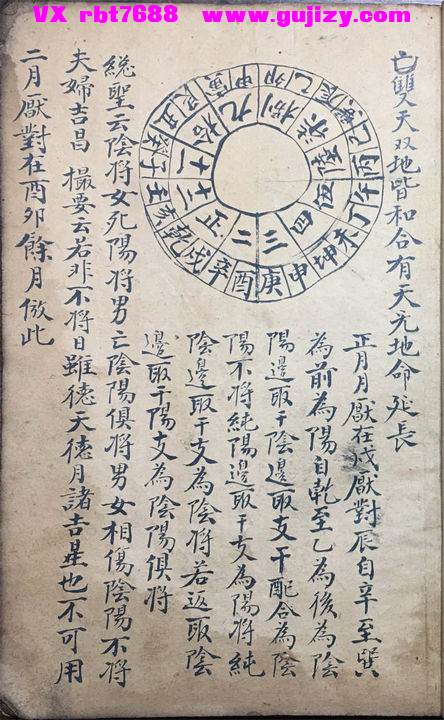 VX rbt7688 www.gujizy.com
亡雙天双地皆和合有天无地命延長
正月月厭在戌厭對辰自辛至巽
為前為陽自乾至乙為後為陰
陽邊取干陰邊取支干配合為陰
陽不將純陽邊取干支為陽將純
陰邊取干支為陰將若返取陰
邊取干陽支為陰陽俱將
正二三四伍陸柒捌九拾十一十二
戌辛酉庚申坤未丁午丙巳巽辰乙卯甲寅艮丑癸子壬亥乾
総聖云陰將女死陽將男亡陰陽俱將男女相傷陰陽不將
夫婦吉昌 撮要云若非不將日雖德天德月諸吉星也不可用
二月厭對在酉卯餘月倣此